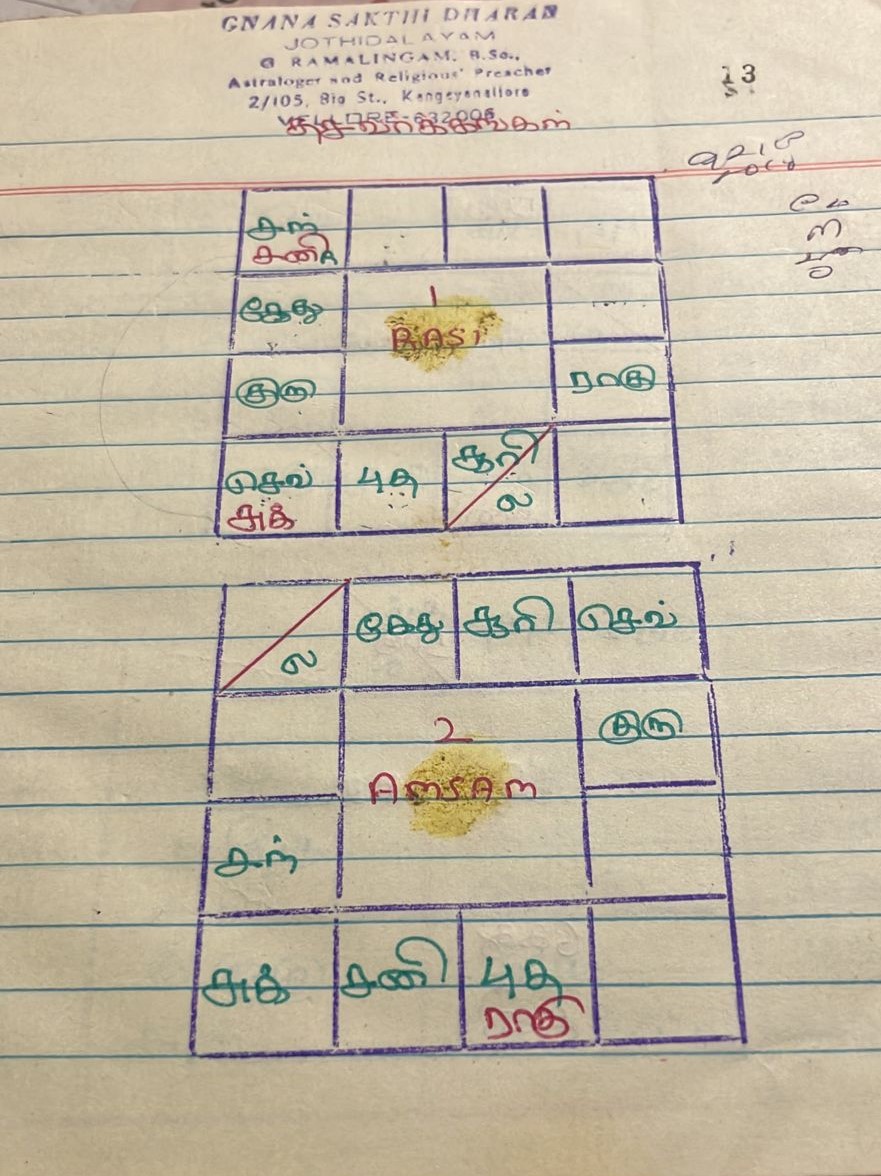 GNANA SAKTHI DHARAN
JOTHIDALAYAM
G RAMALINGAM. B.Sc.,
Astrologer and Religious Preacher
2/105, Big St., Kangeyanallore
VELLORE-632006
13
தச வர்க்கங்கள்
சன்
சனி
கேது
1
RASI
குரு
ராகு
செவ் புத சூரி
சுக் ல
கேது சூரி செவ்
ல
2 குரு
AmSAm
சன்
சுக் சனி புத
ராகு